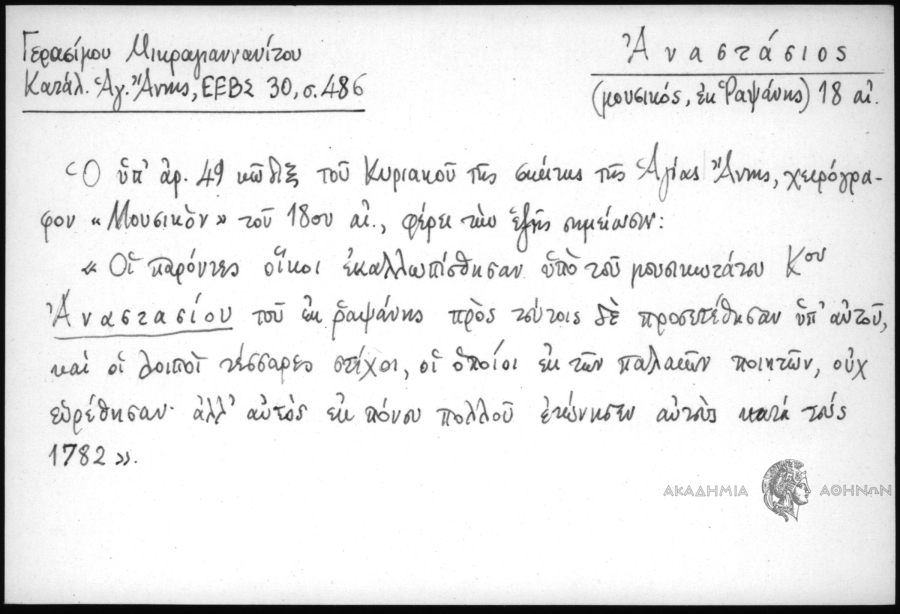 Γερασίμου Μικραγιαννανίτου
Κατάλ. Ἁγ. Ἄννης, ΕΕΒΣ 30, σ. 486
Ἀναστάσιος
(μουσικός, ἐκ Ῥαψάνης) 18 αἰ.
Ὁ ὑπ' ἀρ. 49 κῶδιξ τοῦ Κυριακοῦ τῆς σκήτης τῆς Ἁγίας Ἄννης, χειρόγρα-
φον «Μουσικὸν» τοῦ 18ου αἰ., φέρει τὴν ἑξῆς σημείωσιν:
«Οἱ παρόντες οἶκοι ἐκαλλωπίσθησαν ὑπὸ τοῦ μουσικωτάτου Κου
Ἀναστασίου τοῦ ἐκ ῥαψάνης πρὸς τούτοις δὲ προσετέθησαν ὑπ' αὐτοῦ,
καὶ οἱ λοιποὶ τέσσαρες στίχοι, οἱ ὁποῖοι ἐκ τῶν παλαιῶν ποιητῶν, οὐχ
εὑρέθησαν· ἀλλ' αὐτὸς ἐκ πόνου πολλοῦ ἐτόνησεν αὐτοὺς κατά τοὺς
1782».
ΑΚΑΔΗΜΙΑ ΑΘΗΝΩΝ